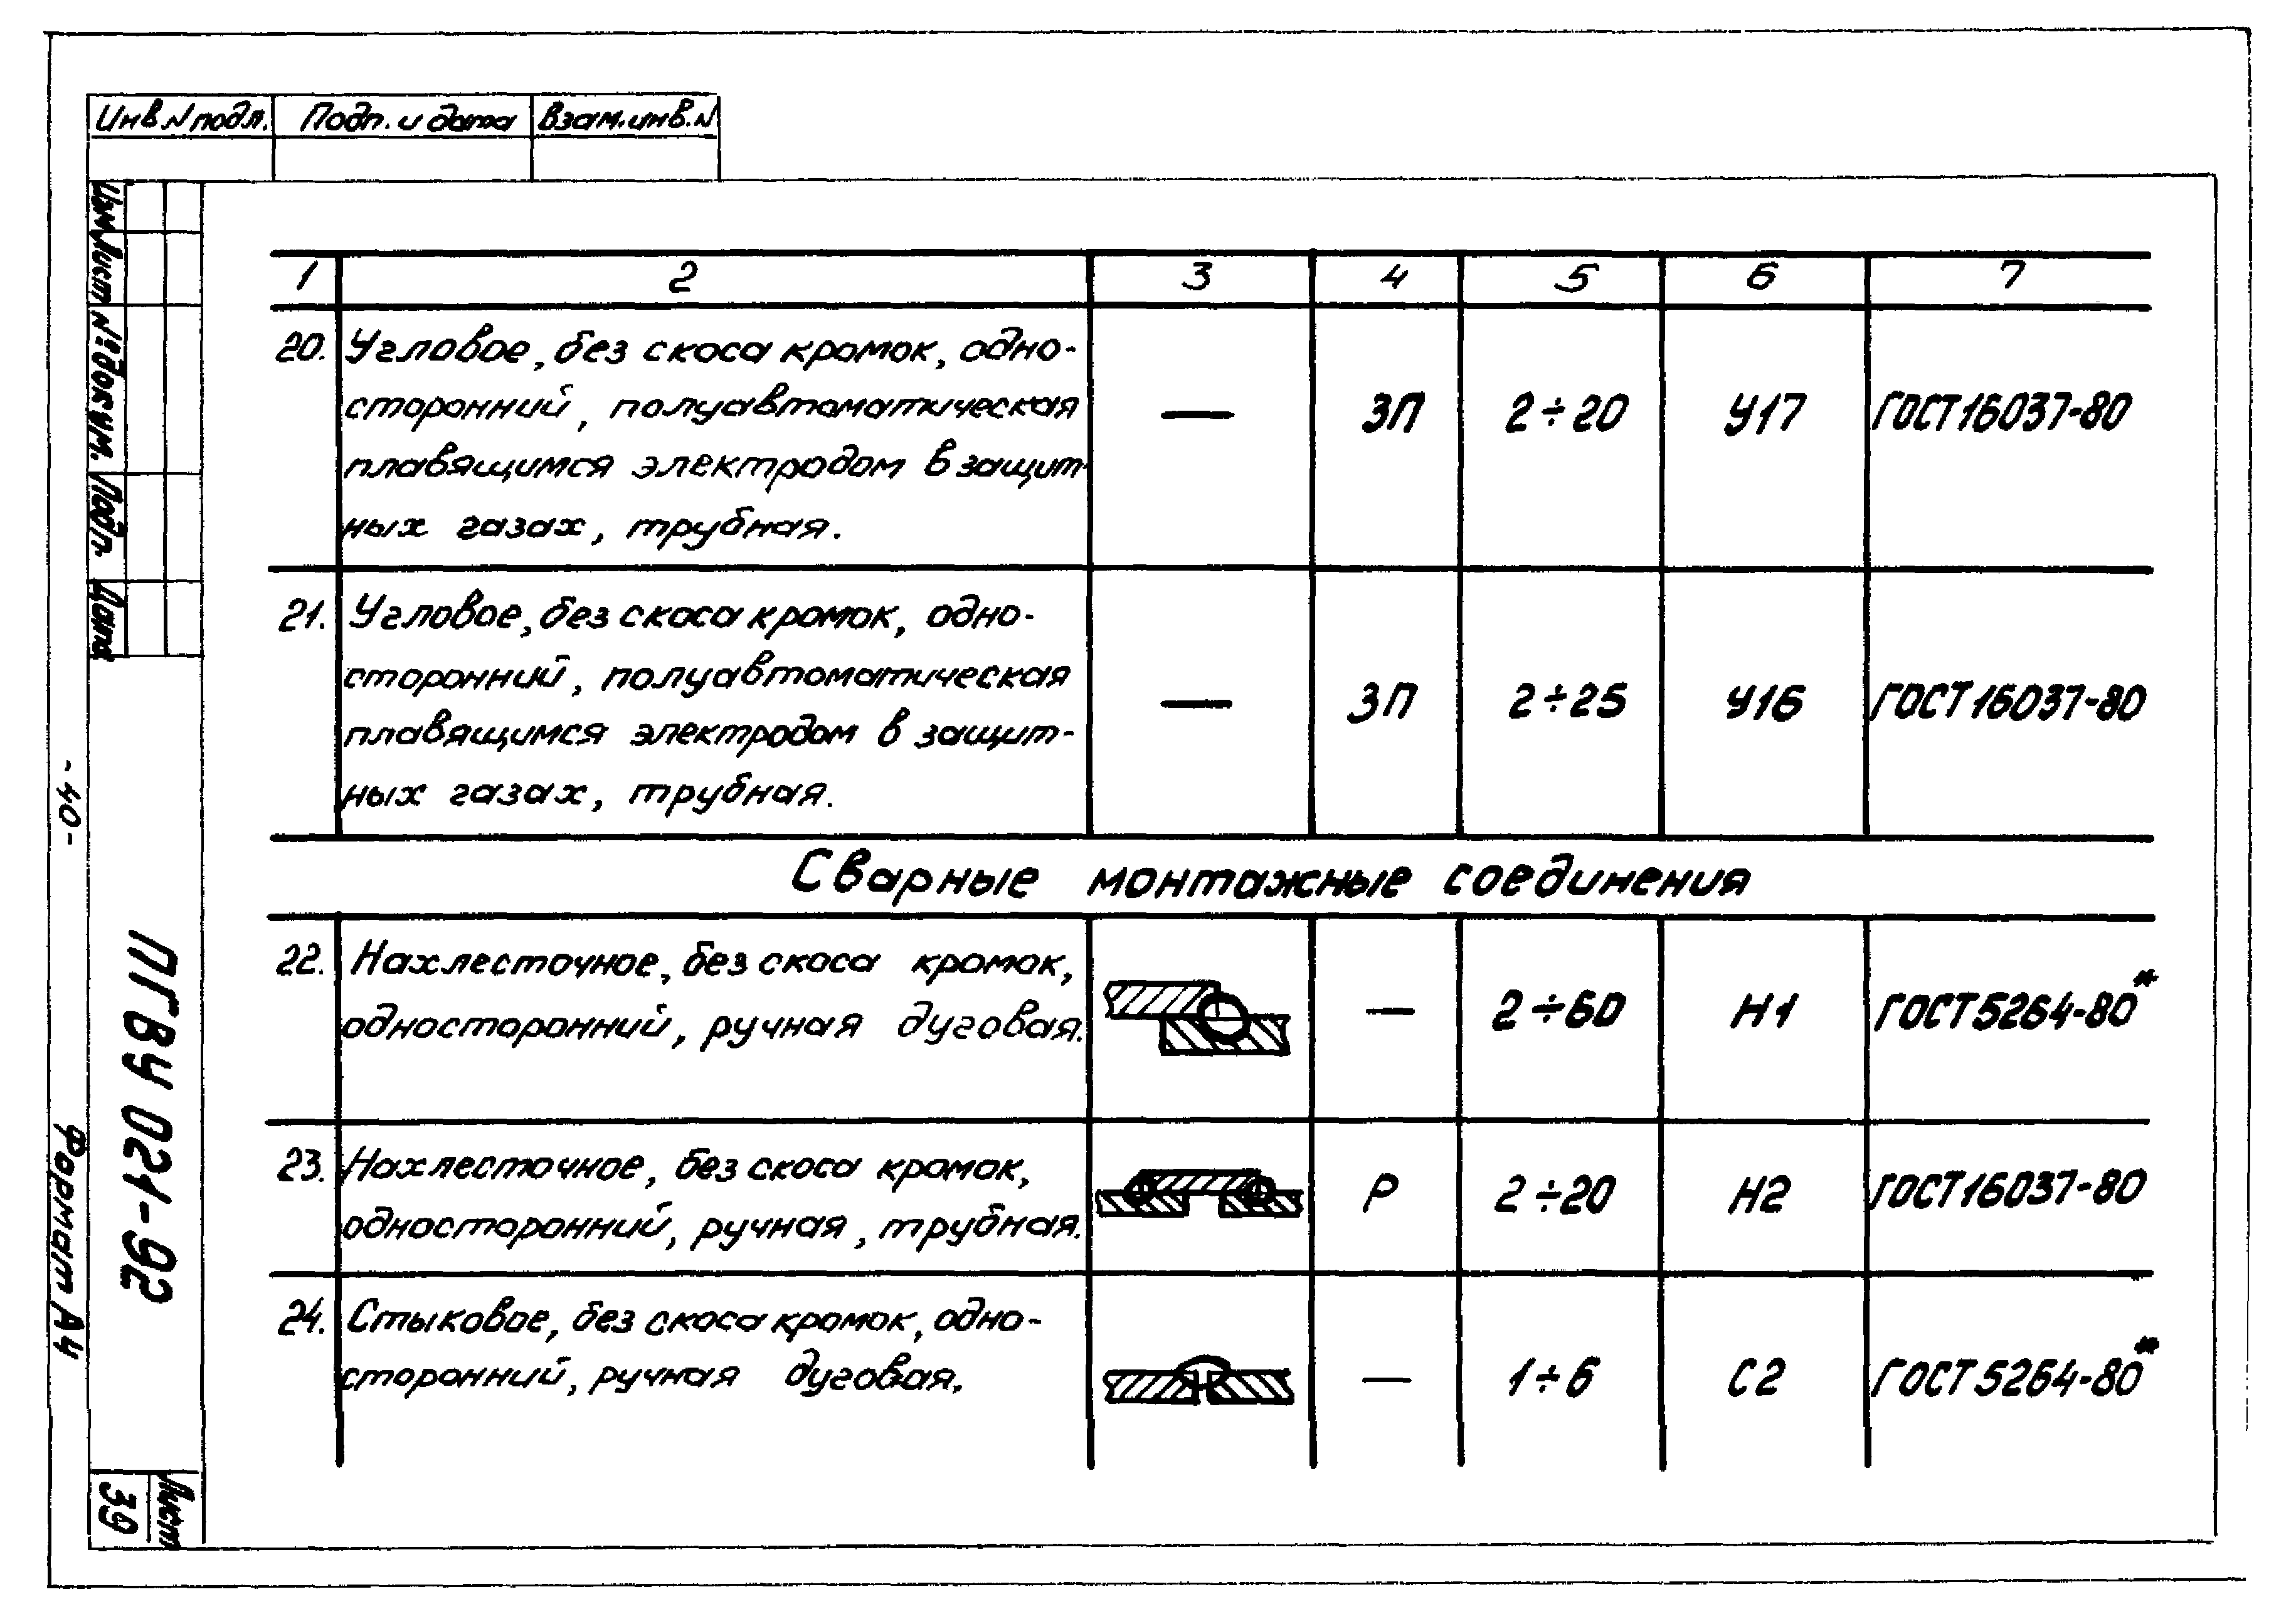 Инв N подл. Подп. и дата Взам. инв. N
Изм. Лист № докум. Подп. Дата
1 2 3 4 5 6 7
20. Угловое, без скоса кромок, одно-
сторонний, полуавтоматическая
плавящимся электродом в защит-
ных газах, трубная.
— ЗП 2÷20 У17 ГОСТ 16037-80
21. Угловое, без скоса кромок, одно-
сторонний, полуавтоматическая
плавящимся электродом в защит-
ных газах, трубная.
— ЗП 2÷25 У16 ГОСТ 16037-80
Сварные монтажные соединения
22. Нахлесточное, без скоса кромок,
односторонний, ручная дуговая.
— 2÷60 Н1 ГОСТ 5264-80*
23. Нахлесточное, без скоса кромок,
односторонний, ручная, трубная.
Р 2÷20 Н2 ГОСТ 16037-80
24. Стыковое, без скоса кромок, одно-
сторонний, ручная дуговая.
— 1÷6 С2 ГОСТ 5264-80*
-40-
ПГВУ 021-92
Формат А4
Лист
39